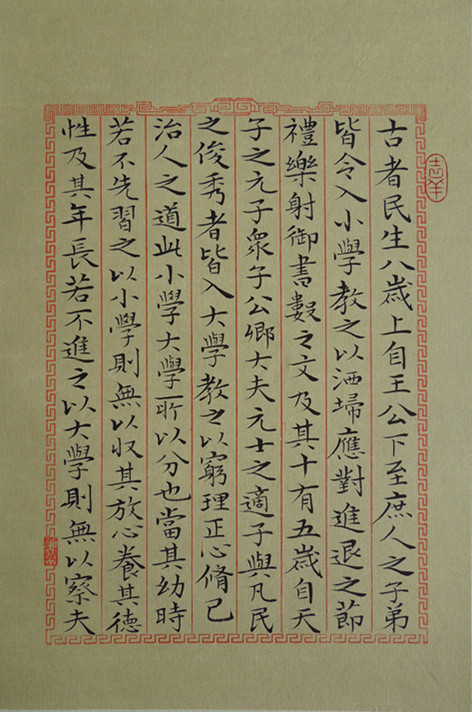 古者民生八歲上自王公下至庶人之子弟
皆令入小學教之以洒埽應對進退之節
禮樂射御書數之文及其十有五歲自天
子之元子衆子公卿大夫元士之適子與凡民
之俊秀者皆入大學教之以窮理正心脩己
治人之道此小學大學所以分也當其幼時
若不先習之以小學則無以收其放心養其德
性及其年長若不進之以大學則無以察夫
吉羊